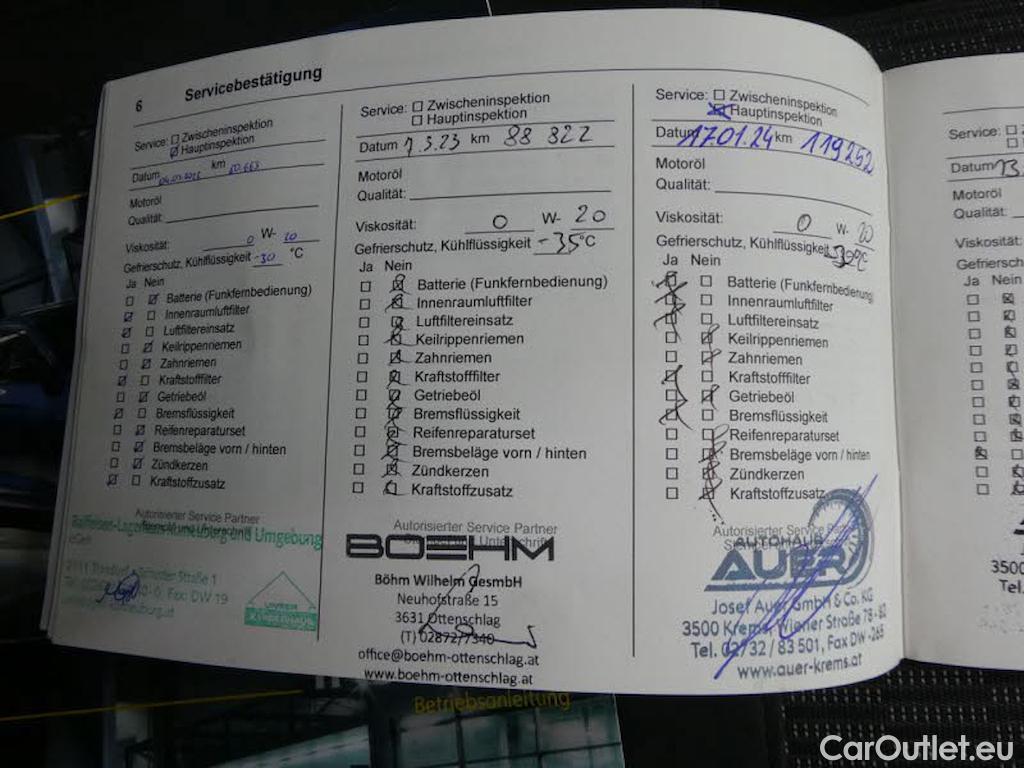 6 Servicebestätigung
Service: Zwischeninspektion
Hauptinspektion
Datum km
Motoröl
Qualität:
Viskosität: 0 W- 20
Gefrierschutz, Kühlflüssigkeit -30 °C
Ja Nein
Batterie (Funkfernbedienung)
Innenraumluftfilter
Luftfiltereinsatz
Keilrippenriemen
Zahnriemen
Kraftstofffilter
Getriebeöl
Bremsflüssigkeit
Reifenreparaturset
Bremsbeläge vorn / hinten
Zündkerzen
Kraftstoffzusatz
Autorisierter Service Partner
und Umgebung
Straße 1
Fax: DW 19
Service: Zwischeninspektion
Hauptinspektion
Datum 7.3.23 km 88 322
Motoröl
Qualität:
Viskosität: 0 W- 20
Gefrierschutz, Kühlflüssigkeit -35°C
Ja Nein
Batterie (Funkfernbedienung)
Innenraumluftfilter
Luftfiltereinsatz
Keilrippenriemen
Zahnriemen
Kraftstofffilter
Getriebeöl
Bremsflüssigkeit
Reifenreparaturset
Bremsbeläge vorn / hinten
Zündkerzen
Kraftstoffzusatz
Autorisierter Service Partner
BOEHM
Böhm Wilhelm GesmbH
Neuhofstraße 15
3631 Ottenschlag
(T) 02872/7340
office@boehm-ottenschlag.at
www.boehm-ottenschlag.at
Service: Zwischeninspektion
Hauptinspektion
Datum 17.01.24 km 119252
Motoröl
Qualität:
Viskosität: 0 W- 20
Gefrierschutz, Kühlflüssigkeit
Ja Nein
Batterie (Funkfernbedienung)
Innenraumluftfilter
Luftfiltereinsatz
Keilrippenriemen
Zahnriemen
Kraftstofffilter
Getriebeöl
Bremsflüssigkeit
Reifenreparaturset
Bremsbeläge vorn / hinten
Zündkerzen
Kraftstoffzusatz
Autorisierter Service Partner
AUTOHAUS
AUER
Josef Auer GmbH & Co. KG
3500 Krems, Wiener Straße 78 - 82
Tel. 02732 / 83 501, Fax DW -265
www.auer-krems.at
Service:
Datum 13
Motoröl
Qualität:
Viskosität:
Gefriersch
Ja Nein
3500
Tel.
Betriebsanleitung
CarOutlet.eu